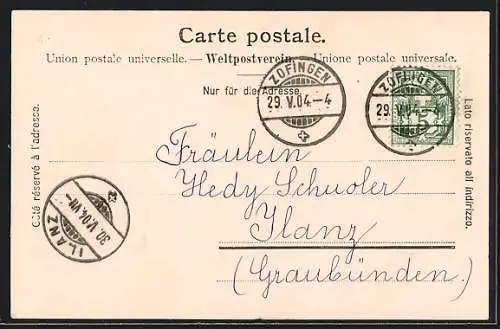 Carte postale.
Union postale universelle. — Weltpostverein. — Unione postale universale.
Nur für die Adresse.
ZOFINGEN
29. V. 04 — 4
ZOFINGEN
29. V. 04 — 4
5
Côté réservé à l'adresse.
Lato riservato all' indirizzo.
Fräulein
Hedy Schuoler
Ilanz
(Graubünden.)
ILANZ
30. V. 04. VII —